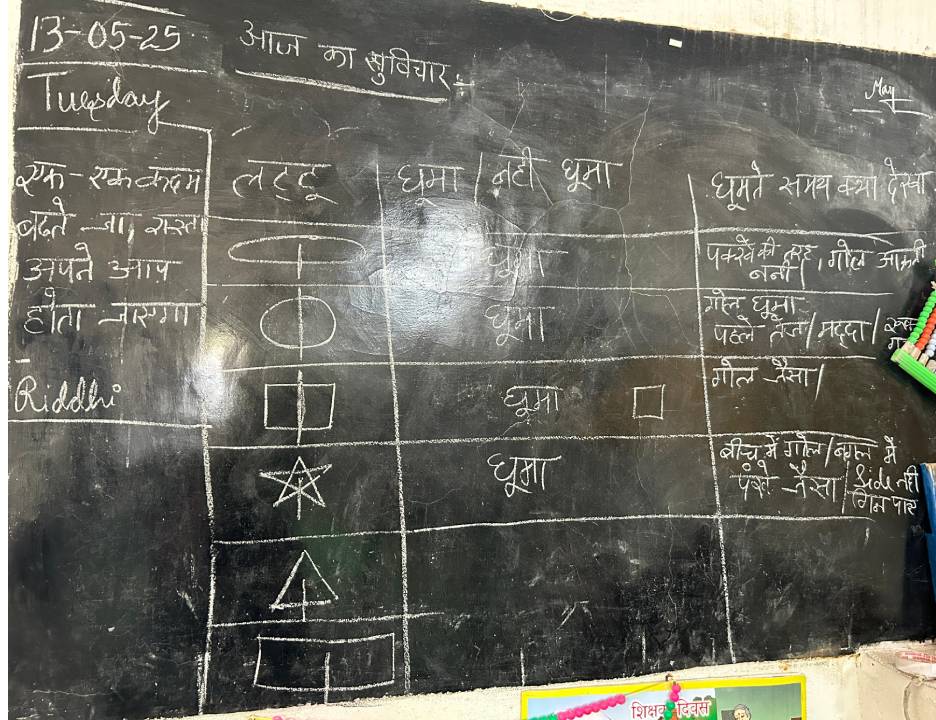 13-05-25
आज का सुविचार :
May
Tuesday
एक-एक कदम
बढ़ते जा, रास्ता
अपने आप
होता जाएगा
Riddhi
लट्टू घूमा / नही घूमा घूमते समय क्या देखा
घूमा पक्खे की तरह, गोल आकृती
बनी।
घूमा गोल घूमा
पहले तेज / मद्दा /
घूमा गोल जैसा।
घूमा बीच में गोल / बगल में
पंखे जैसा / Side नही
गिन पाए
शिक्षक दिवस